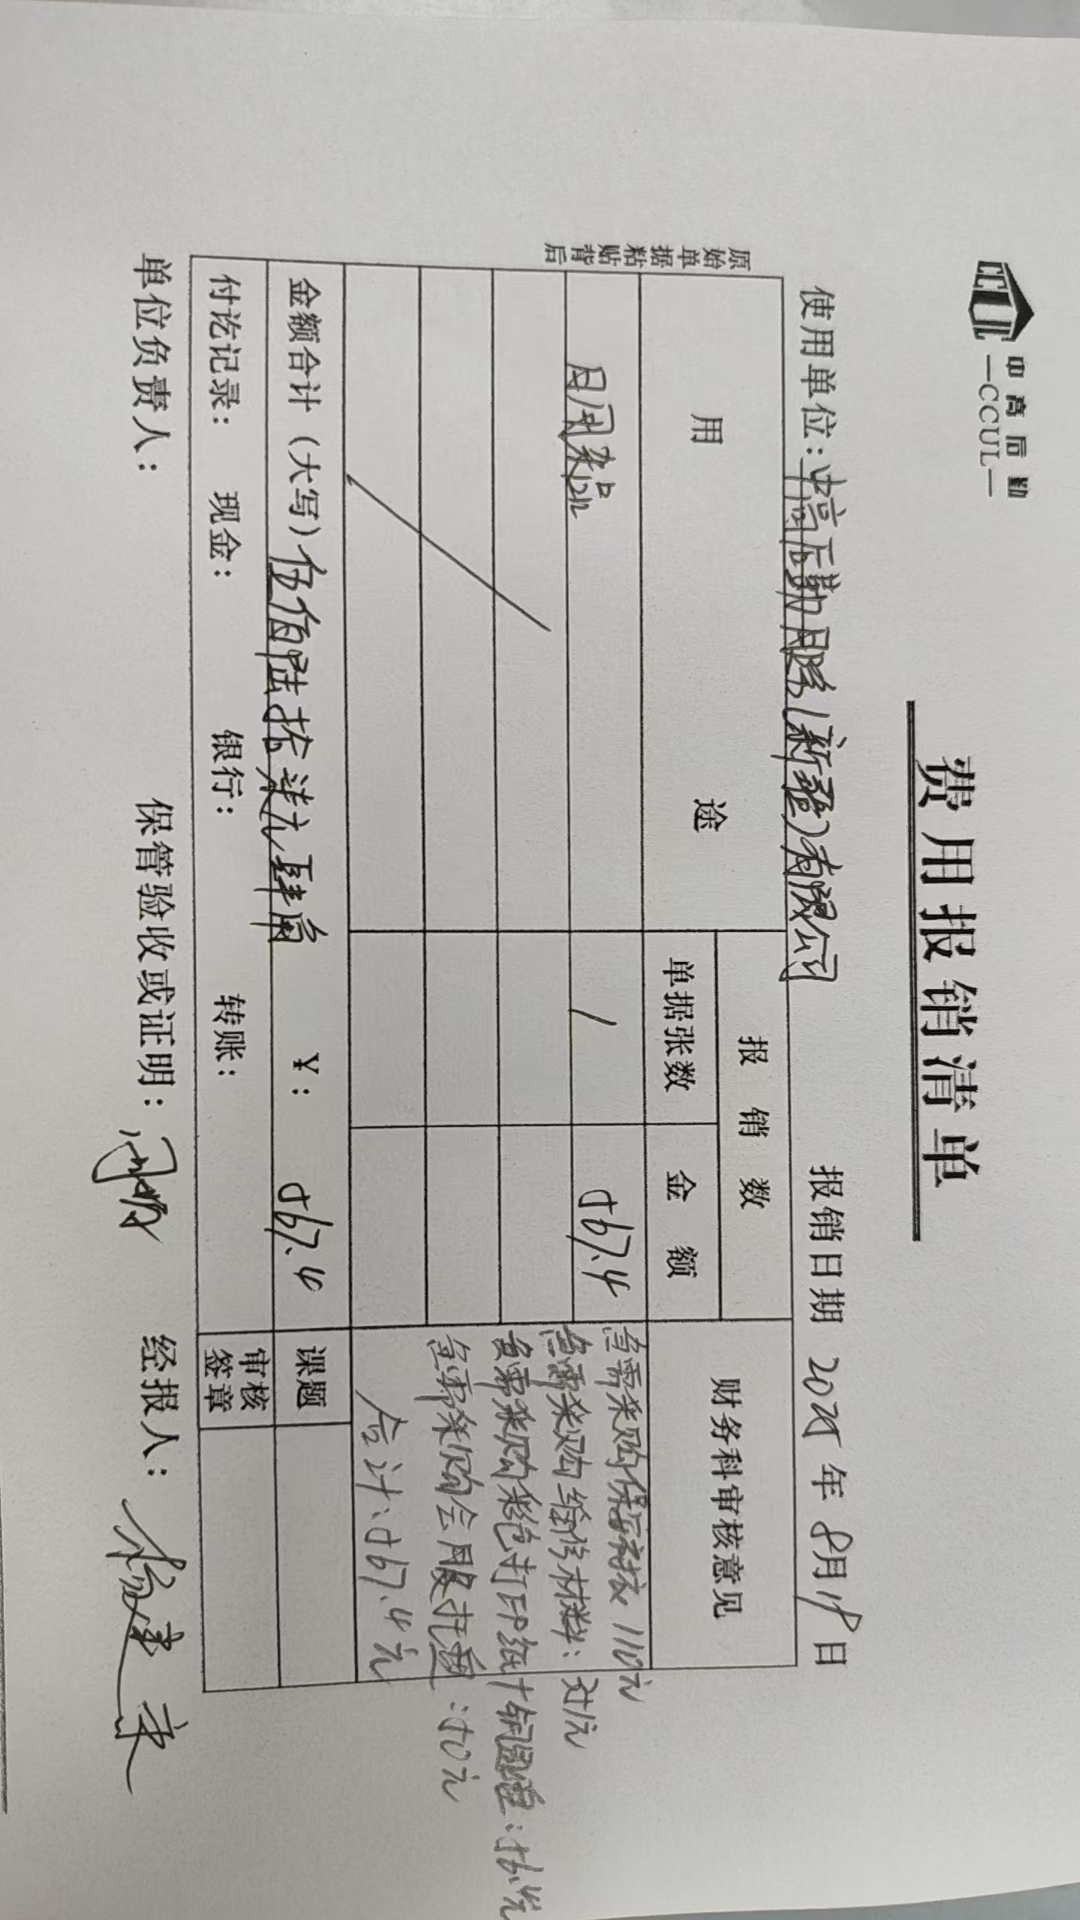 中高后勤
—CCUL—
费用报销清单
使用单位：中高后勤服务（新疆）有限公司 报销日期 2025年8月18日
原始单据粘贴背后
用途 报销数 财务科审核意见
单据张数 金额
日用杂品 1 567.4
急需采购保安衣 110元
急需采购给修材料：351元
急需采购彩色打印纸+钥匙：56.4元
急需采购会服托：50元
合计：567.4元
金额合计（大写）伍佰陆拾柒元肆角 ¥：567.4 课题
付讫记录： 现金： 银行： 转账： 审核签章
单位负责人： 保管验收或证明： 经报人：